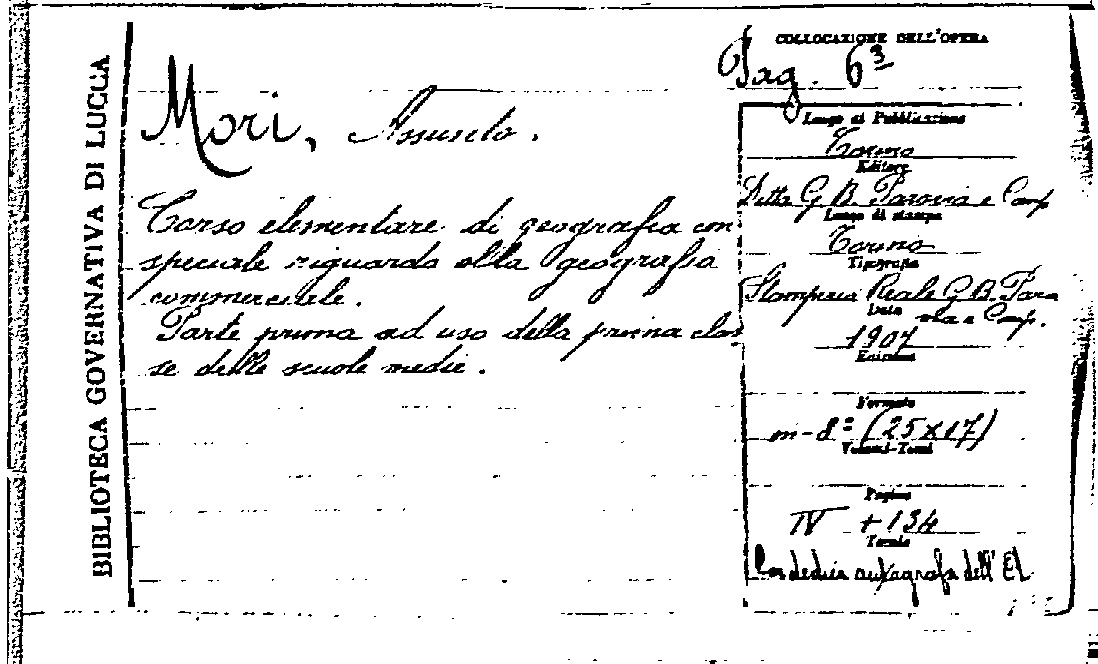 BIBLIOTECA GOVERNATIVA DI LUCCA
Mori, Assunto.
Corso elementare di geografia con
speciale riguardo alla geografia
commerciale.
Parte prima ad uso della prima clas-
se delle scuole medie.
COLLOCAZIONE DELL'OPERA
Pag. 6³
Luogo di Pubblicazione
Torino
Editore
Ditta G. B. Paravia e Comp
Luogo di stampa
Torino
Tipografia
Stamperia Reale G. B. Para
Data
via e Comp.
1907
Edizione
Formato
in-8° (25x17)
Volumi-Tomi
Pagine
IV + 134
Tavole
Con dedica autografa dell'